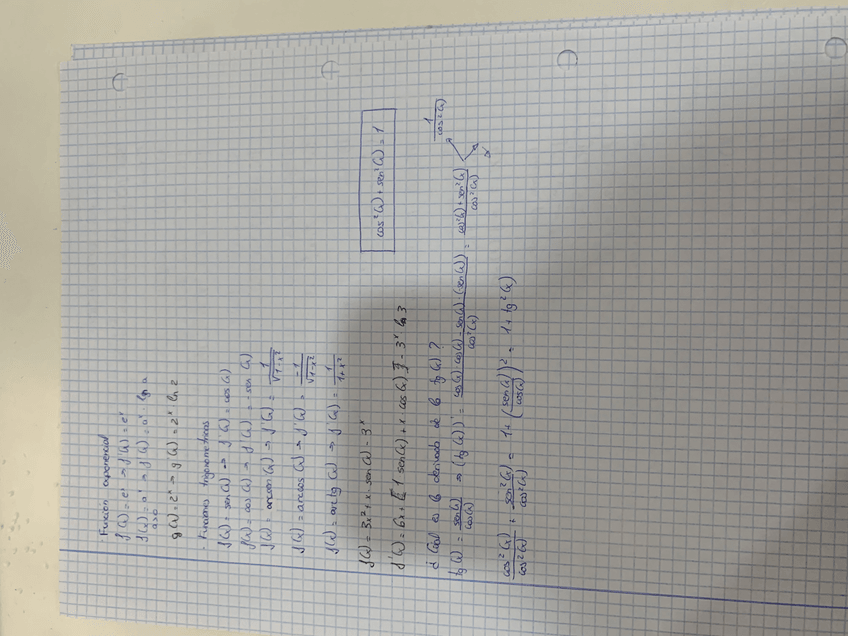 Función exponencial
f(x) = eˣ ⇒ f'(x) = eˣ
f(x) = aˣ ⇒ f'(x) = aˣ ln a
a>0
g(x) = 2ˣ ⇒ g'(x) = 2ˣ ln 2
· Funciones trigonométricas
f(x) = sen(x) ⇒ f'(x) = cos(x)
f(x) = cos(x) ⇒ f'(x) = -sen(x)
f(x) = arcsen(x) ⇒ f'(x) = 1/√(1-x²)
f(x) = arccos(x) ⇒ f'(x) = -1/√(1-x²)
f(x) = arctg(x) ⇒ f'(x) = 1/(1+x²)
f(x) = 3x² + x · sen(x) - 3ˣ
cos²(x) + sen²(x) = 1
f'(x) = 6x + [1 · sen(x) + x · cos(x)] - 3ˣ ln 3
¿Cuál es la derivada de la tg(x)?
tg(x) = sen(x)/cos(x) ⇒ (tg(x))' = (cos(x) · cos(x) - sen(x) · (-sen(x)))/cos²(x) = (cos²(x) + sen²(x))/cos²(x)
1/cos²(x)
cos²(x)/cos²(x) + sen²(x)/cos²(x) = 1 + (sen(x)/cos(x))² = 1 + tg²(x)